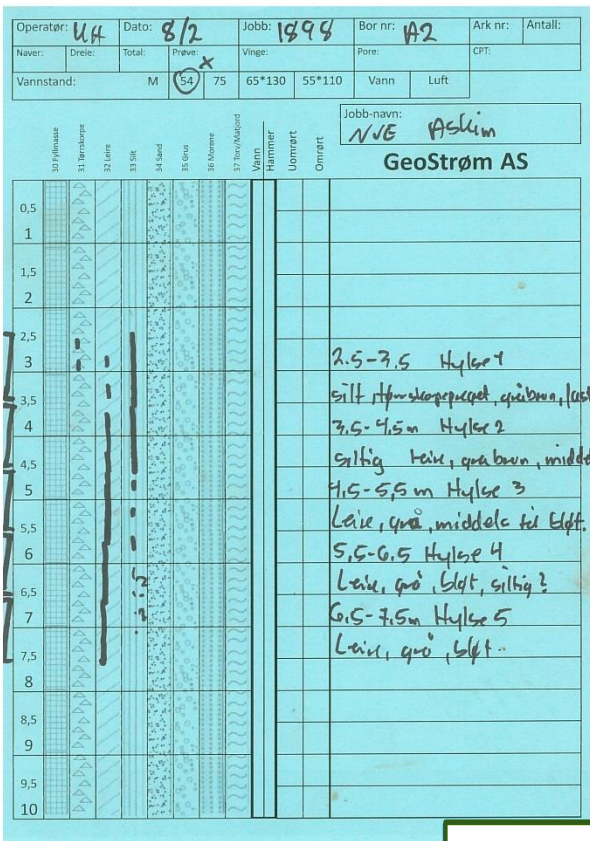 Operatør: UH Dato: 8/2 Jobb: 1898 Bor nr: A2 Ark nr: Antall:
Naver: Dreie: Total: Prøve: x Vinge: Pore: CPT:
Vannstand: M 54 75 65*130 55*110 Vann Luft
Jobb-navn:
NVE Askim
GeoStrøm AS
30 Fyllmasse
31 Tørrskorpe
32 Leire
33 Silt
34 Sand
35 Grus
36 Morene
37 Torv/Matjord
Vann
Hammer
Uomrørt
Omrørt
0,5
1
1,5
2
2,5
3 2.5-3,5 Hylse 1
3,5 silt, tørrskorpepreget, gråbrun, fast
4 3,5-4,5m Hylse 2
4,5 siltig leire, gråbrun, middel
5 4,5-5,5m Hylse 3
5,5 Leire, grå, middels til bløt.
6 5,5-6,5 Hylse 4
6,5 Leire, grå, bløt, siltig?
7 6,5-7,5m Hylse 5
7,5 Leire, grå, bløt.
8
8,5
9
9,5
10